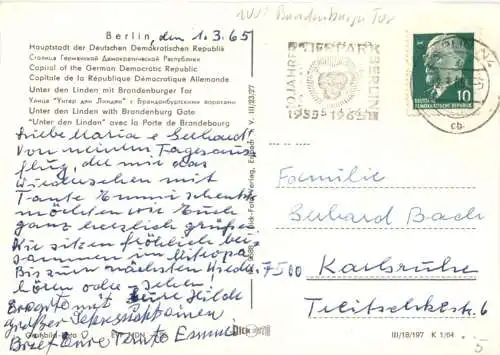 1001 Brandenburger Tor
Berlin, den 1.3.65
Hauptstadt der Deutschen Demokratischen Republik
Столица Германской Демократической Республики
Capital of the German Democratic Republic
Capitale de la République Démocratique Allemande
Unter den Linden mit Brandenburger Tor
Улица "Унтер ден Линден" с Бранденбургскими воротами
Unter den Linden with Brandenburg Gate
"Unter den Linden" avec la Porte de Brandebourg
Liebe Maria & Gerhard!
Von meinem Tagesaus-
flug, der mir das
Wiedersehen mit
Tante Emmi schenkte
möchten wir Euch
ganz herzlich grüßen.
Wir sitzen fröhlich bei-
sammen im Mitropa
Bis zum nächsten Wieder-
hören oder sehen.
Eure Hilde
mit
großer
Brief Eure Tante Emmi
V III/23/27
10 JAHRE TIERPARK BERLIN
1955-1965
DEUTSCHE DEMOKRATISCHE REPUBLIK
10
cb
Familie
Gerhard Bach
7500 Karlsruhe
6
III/18/197 K 1/64
5